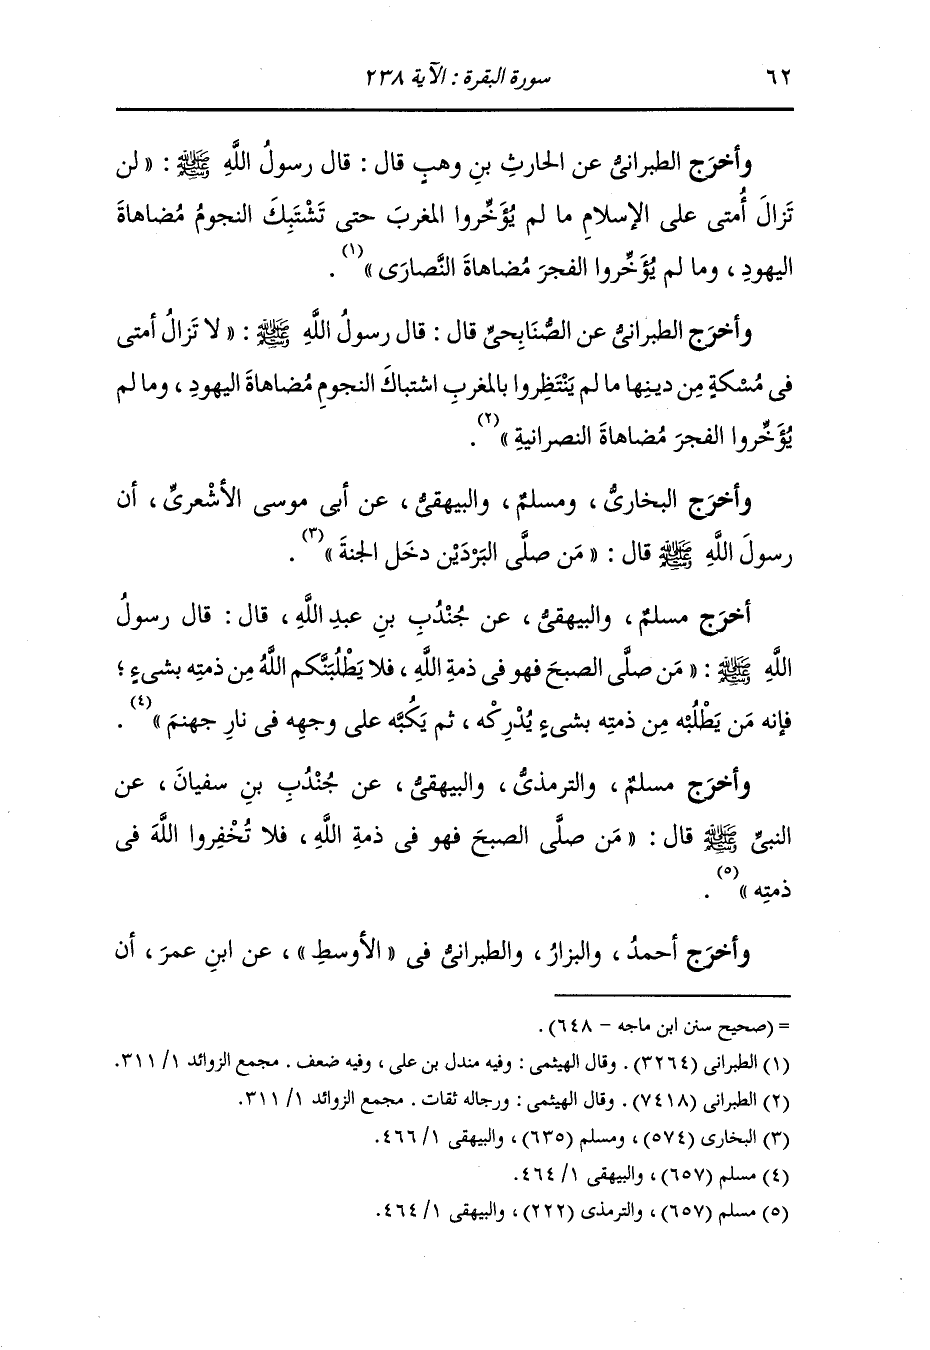 ٦٢ سورة البقرة : الآية ٢٣٨
وأخرَج الطبرانىُّ عن الحارثِ بنِ وهبٍ قال : قال رسولُ اللَّهِ ﷺ : « لن
تَزالَ أُمتى على الإسلامِ ما لم يُؤَخِّروا المغربَ حتى تَشْتَبِكَ النجومُ مُضاهاةَ
اليهودِ ، وما لم يُؤَخِّروا الفجرَ مُضاهاةَ النَّصارَى »(١) .
وأخرَج الطبرانىُّ عن الصُّنَابِحىِّ قال : قال رسولُ اللَّهِ ﷺ : « لا تَزالُ أمتى
فى مُسْكةٍ مِن دينِها ما لم يَنْتَظِروا بالمغربِ اشتباكَ النجومِ مُضاهاةَ اليهودِ ، وما لم
يُؤَخِّروا الفجرَ مُضاهاةَ النصرانيةِ »(٢) .
وأخرَج البخارىُّ ، ومسلمٌ ، والبيهقىُّ ، عن أبى موسى الأشْعرىِّ ، أن
رسولَ اللَّهِ ﷺ قال : « مَن صلَّى البَرْدَيْن دخَل الجنةَ »(٣) .
أخرَج مسلمٌ ، والبيهقىُّ ، عن جُنْدُبِ بنِ عبدِ اللَّهِ ، قال : قال رسولُ
اللَّهِ ﷺ : « مَن صلَّى الصبحَ فهو فى ذمةِ اللَّهِ ، فلا يَطْلُبَنَّكم اللَّهُ مِن ذمتِه بشىءٍ ؛
فإنه مَن يَطْلُبْه مِن ذمتِه بشىءٍ يُدْرِكْه ، ثم يَكُبُّه على وجهِه فى نارِ جهنمَ »(٤) .
وأخرَج مسلمٌ ، والترمذىُّ ، والبيهقىُّ ، عن جُنْدُبِ بنِ سفيانَ ، عن
النبىِّ ﷺ قال : « مَن صلَّى الصبحَ فهو فى ذمةِ اللَّهِ ، فلا تُخْفِروا اللَّهَ فى
ذمتِه »(٥) .
وأخرَج أحمدُ ، والبزارُ ، والطبرانىُّ فى « الأوسطِ » ، عن ابنِ عمرَ ، أن
= (صحيح سنن ابن ماجه – ٦٤٨) .
(١) الطبرانى (٣٢٦٤) . وقال الهيثمى : وفيه مندل بن على ، وفيه ضعف . مجمع الزوائد ١/ ٣١١.
(٢) الطبرانى (٧٤١٨) . وقال الهيثمى : ورجاله ثقات . مجمع الزوائد ١/ ٣١١.
(٣) البخارى (٥٧٤) ، ومسلم (٦٣٥) ، والبيهقى ١/ ٤٦٦.
(٤) مسلم (٦٥٧) ، والبيهقى ١/ ٤٦٤.
(٥) مسلم (٦٥٧) ، والترمذى (٢٢٢) ، والبيهقى ١/ ٤٦٤.